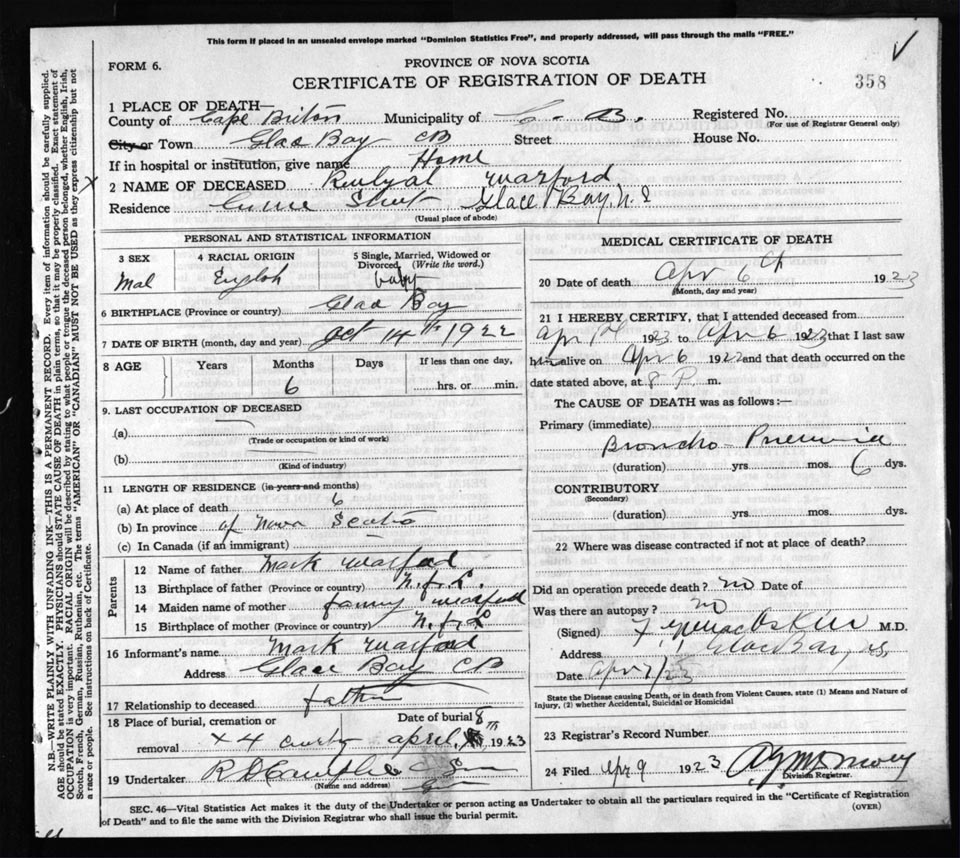 This form if placed in an unsealed envelope marked "Dominion Statistics Free", and properly addressed, will pass through the mails "FREE."
FORM 6.
PROVINCE OF NOVA SCOTIA
CERTIFICATE OF REGISTRATION OF DEATH
358
1 PLACE OF DEATH—
County of Cape Briton Municipality of C. B. Registered No.
(For use of Registrar General only)
City or Town Glac Bay CB Street House No.
If in hospital or institution, give name Home
2 NAME OF DECEASED Warford
Residence Glace Bay, N. S
(Usual place of abode)
PERSONAL AND STATISTICAL INFORMATION
3 SEX
Mal
4 RACIAL ORIGIN
English
5 Single, Married, Widowed or Divorced. (Write the word.)
baby
6 BIRTHPLACE (Province or country) Glac Bay
7 DATE OF BIRTH (month, day and year) Oct 14th 1922
8 AGE Years Months Days If less than one day,
6 hrs. or min.
9. LAST OCCUPATION OF DECEASED
(a)
(Trade or occupation or kind of work)
(b)
(Kind of industry)
11 LENGTH OF RESIDENCE (in years and months)
(a) At place of death 6
(b) In province of Nova Scotia
(c) In Canada (if an immigrant)
Parents
12 Name of father Mark Warford
13 Birthplace of father (Province or country) N.f.L.
14 Maiden name of mother fanny Warford
15 Birthplace of mother (Province or country) N.f.L
16 Informant's name Mark Warford
Address Glace Bay CB
17 Relationship to deceased father
18 Place of burial, cremation or removal
Date of burial 8th
april 1923
19 Undertaker R D Campbell
(Name and address)
MEDICAL CERTIFICATE OF DEATH
20 Date of death Apr 6th 1923
(Month, day and year)
21 I HEREBY CERTIFY, that I attended deceased from
Apr 1923 to Apr 6 1923 that I last saw
him alive on Apr 6 1922 and that death occurred on the
date stated above, at 8 P. m.
The CAUSE OF DEATH was as follows:—
Primary (immediate)
Broncho Pneumonia
(duration) yrs. mos. 6 dys.
CONTRIBUTORY
(Secondary)
(duration) yrs. mos. dys.
22 Where was disease contracted if not at place of death?
Did an operation precede death? no Date of
Was there an autopsy? no
(Signed) M.D.
Address Glace Bay, NS.
Date Apr 7/23
State the Disease causing Death, or in death from Violent Causes, state (1) Means and Nature of
Injury, (2) whether Accidental, Suicidal or Homicidal
23 Registrar's Record Number
24 Filed Apr 9 1923
Division Registrar.
SEC. 46—Vital Statistics Act makes it the duty of the Undertaker or person acting as Undertaker to obtain all the particulars required in the "Certificate of Registration
of Death" and to file the same with the Division Registrar who shall issue the burial permit.
(OVER)
N.B.—WRITE PLAINLY WITH UNFADING INK—THIS IS A PERMANENT RECORD. Every item of information should be carefully supplied.
AGE should be stated EXACTLY. PHYSICIANS should STATE CAUSE OF DEATH in plain terms, so that it may be properly classified. Exact statement of
OCCUPATION is very important. RACIAL ORIGIN will be described by stating to what people or tongue the deceased person belonged, whether English, Irish,
Scotch, French, German, Russian, Ruthenian, etc. The terms "AMERICAN" OR "CANADIAN" MUST NOT BE USED as they express citizenship but not
a race or people. See instructions on back of Certificate.